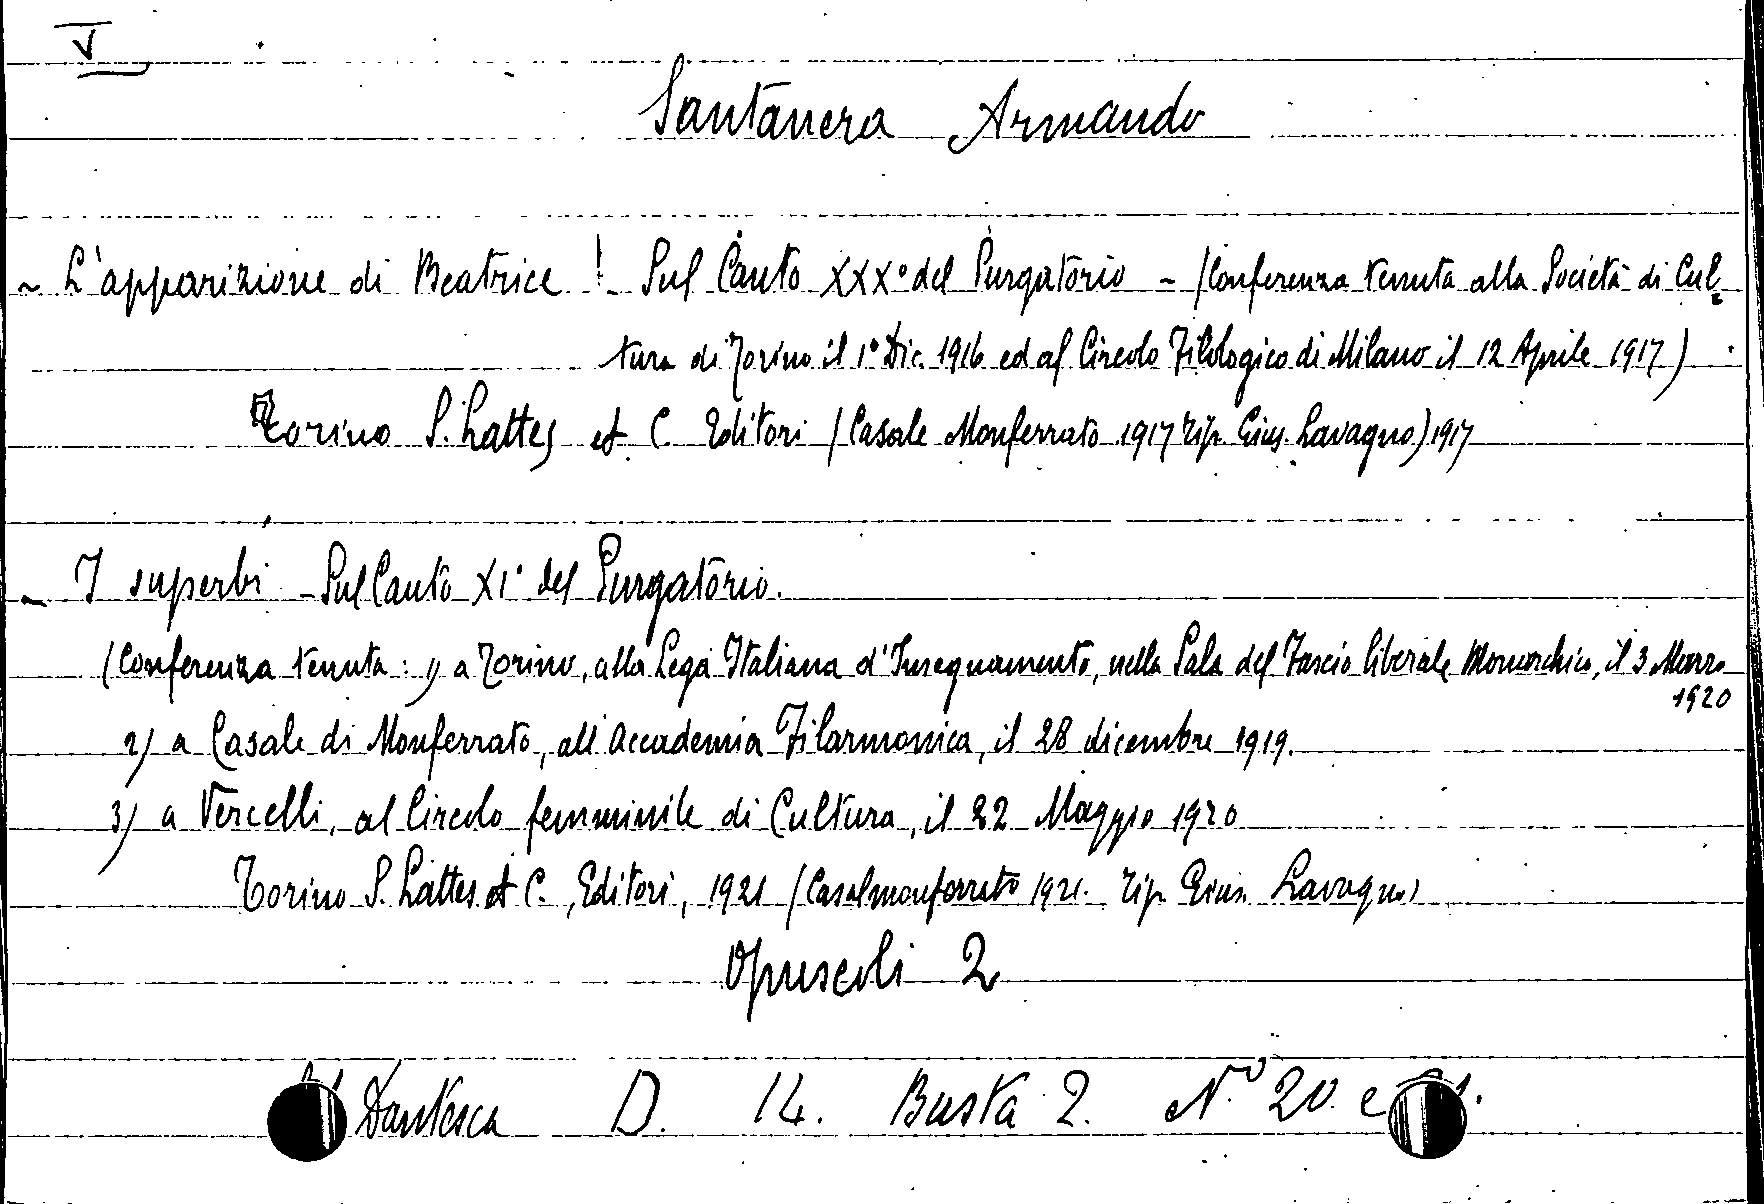 V
Santanera Armando
~ L'apparizione di Beatrice ! Sul Canto XXX° del Purgatorio - (Conferenza tenuta alla Società di Cul=
tura di Torino il 1° Dic. 1916 ed al Circolo Filologico di Milano il 12 Aprile 1917)
Torino S. Lattes et C. Editori (Casale Monferrato 1917 Tip. Gius. Lavagno) 1917
~ I superbi - Sul Canto XI° del Purgatorio.
(Conferenza tenuta: 1) a Torino, alla Lega Italiana d'Insegnamento, nella Sala del Fascio liberale Monarchico, il 3 Marzo
1920
2) a Casale di Monferrato, all'Accademia Filarmonica, il 28 dicembre 1919.
3) a Vercelli, al Circolo femminile di Cultura, il 22 Maggio 1920
Torino S. Lattes et C., Editori, 1921 (Casalmonferrato 1921. Tip. Gius. Lavagno)
Opuscoli 2
Dantesca D. 14. Busta 2. N.° 20. e